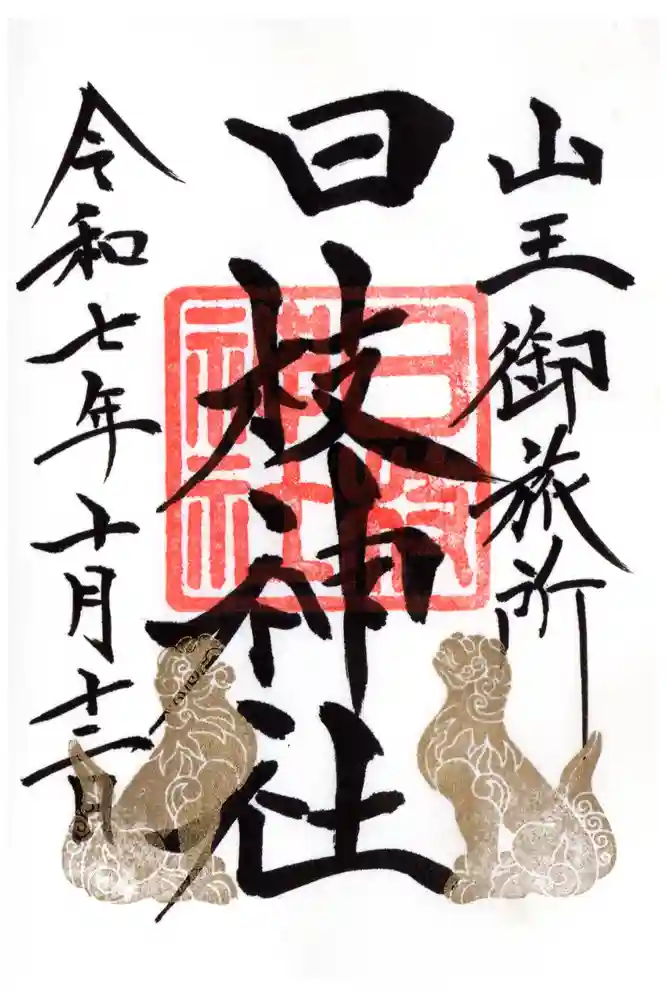 山王御旅所
日枝神社
令和七年十月十二日
日枝
神社